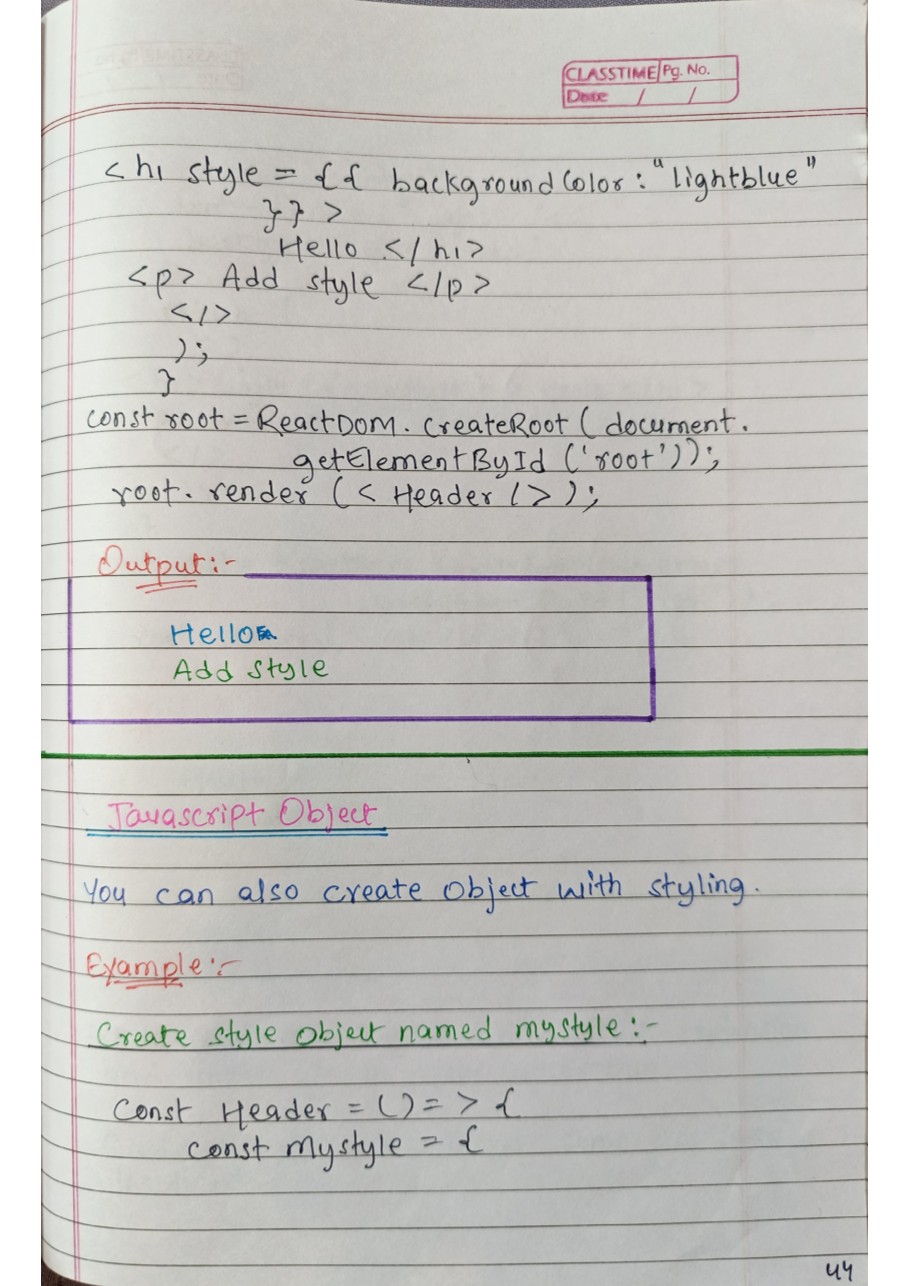 CLASSTIME Pg. No.
Date / /
<h1 style = {{ backgroundColor : "lightblue"
}} >
Hello </h1>
<p> Add style </p>
</>
);
}
const root = ReactDOM. createRoot ( document.
getElementById ('root'));
root. render (< Header />);
Output:-
Hello
Add style
Javascript Object
You can also create object with styling.
Example:-
Create style object named mystyle:-
Const Header = () = > {
const mystyle = {
44